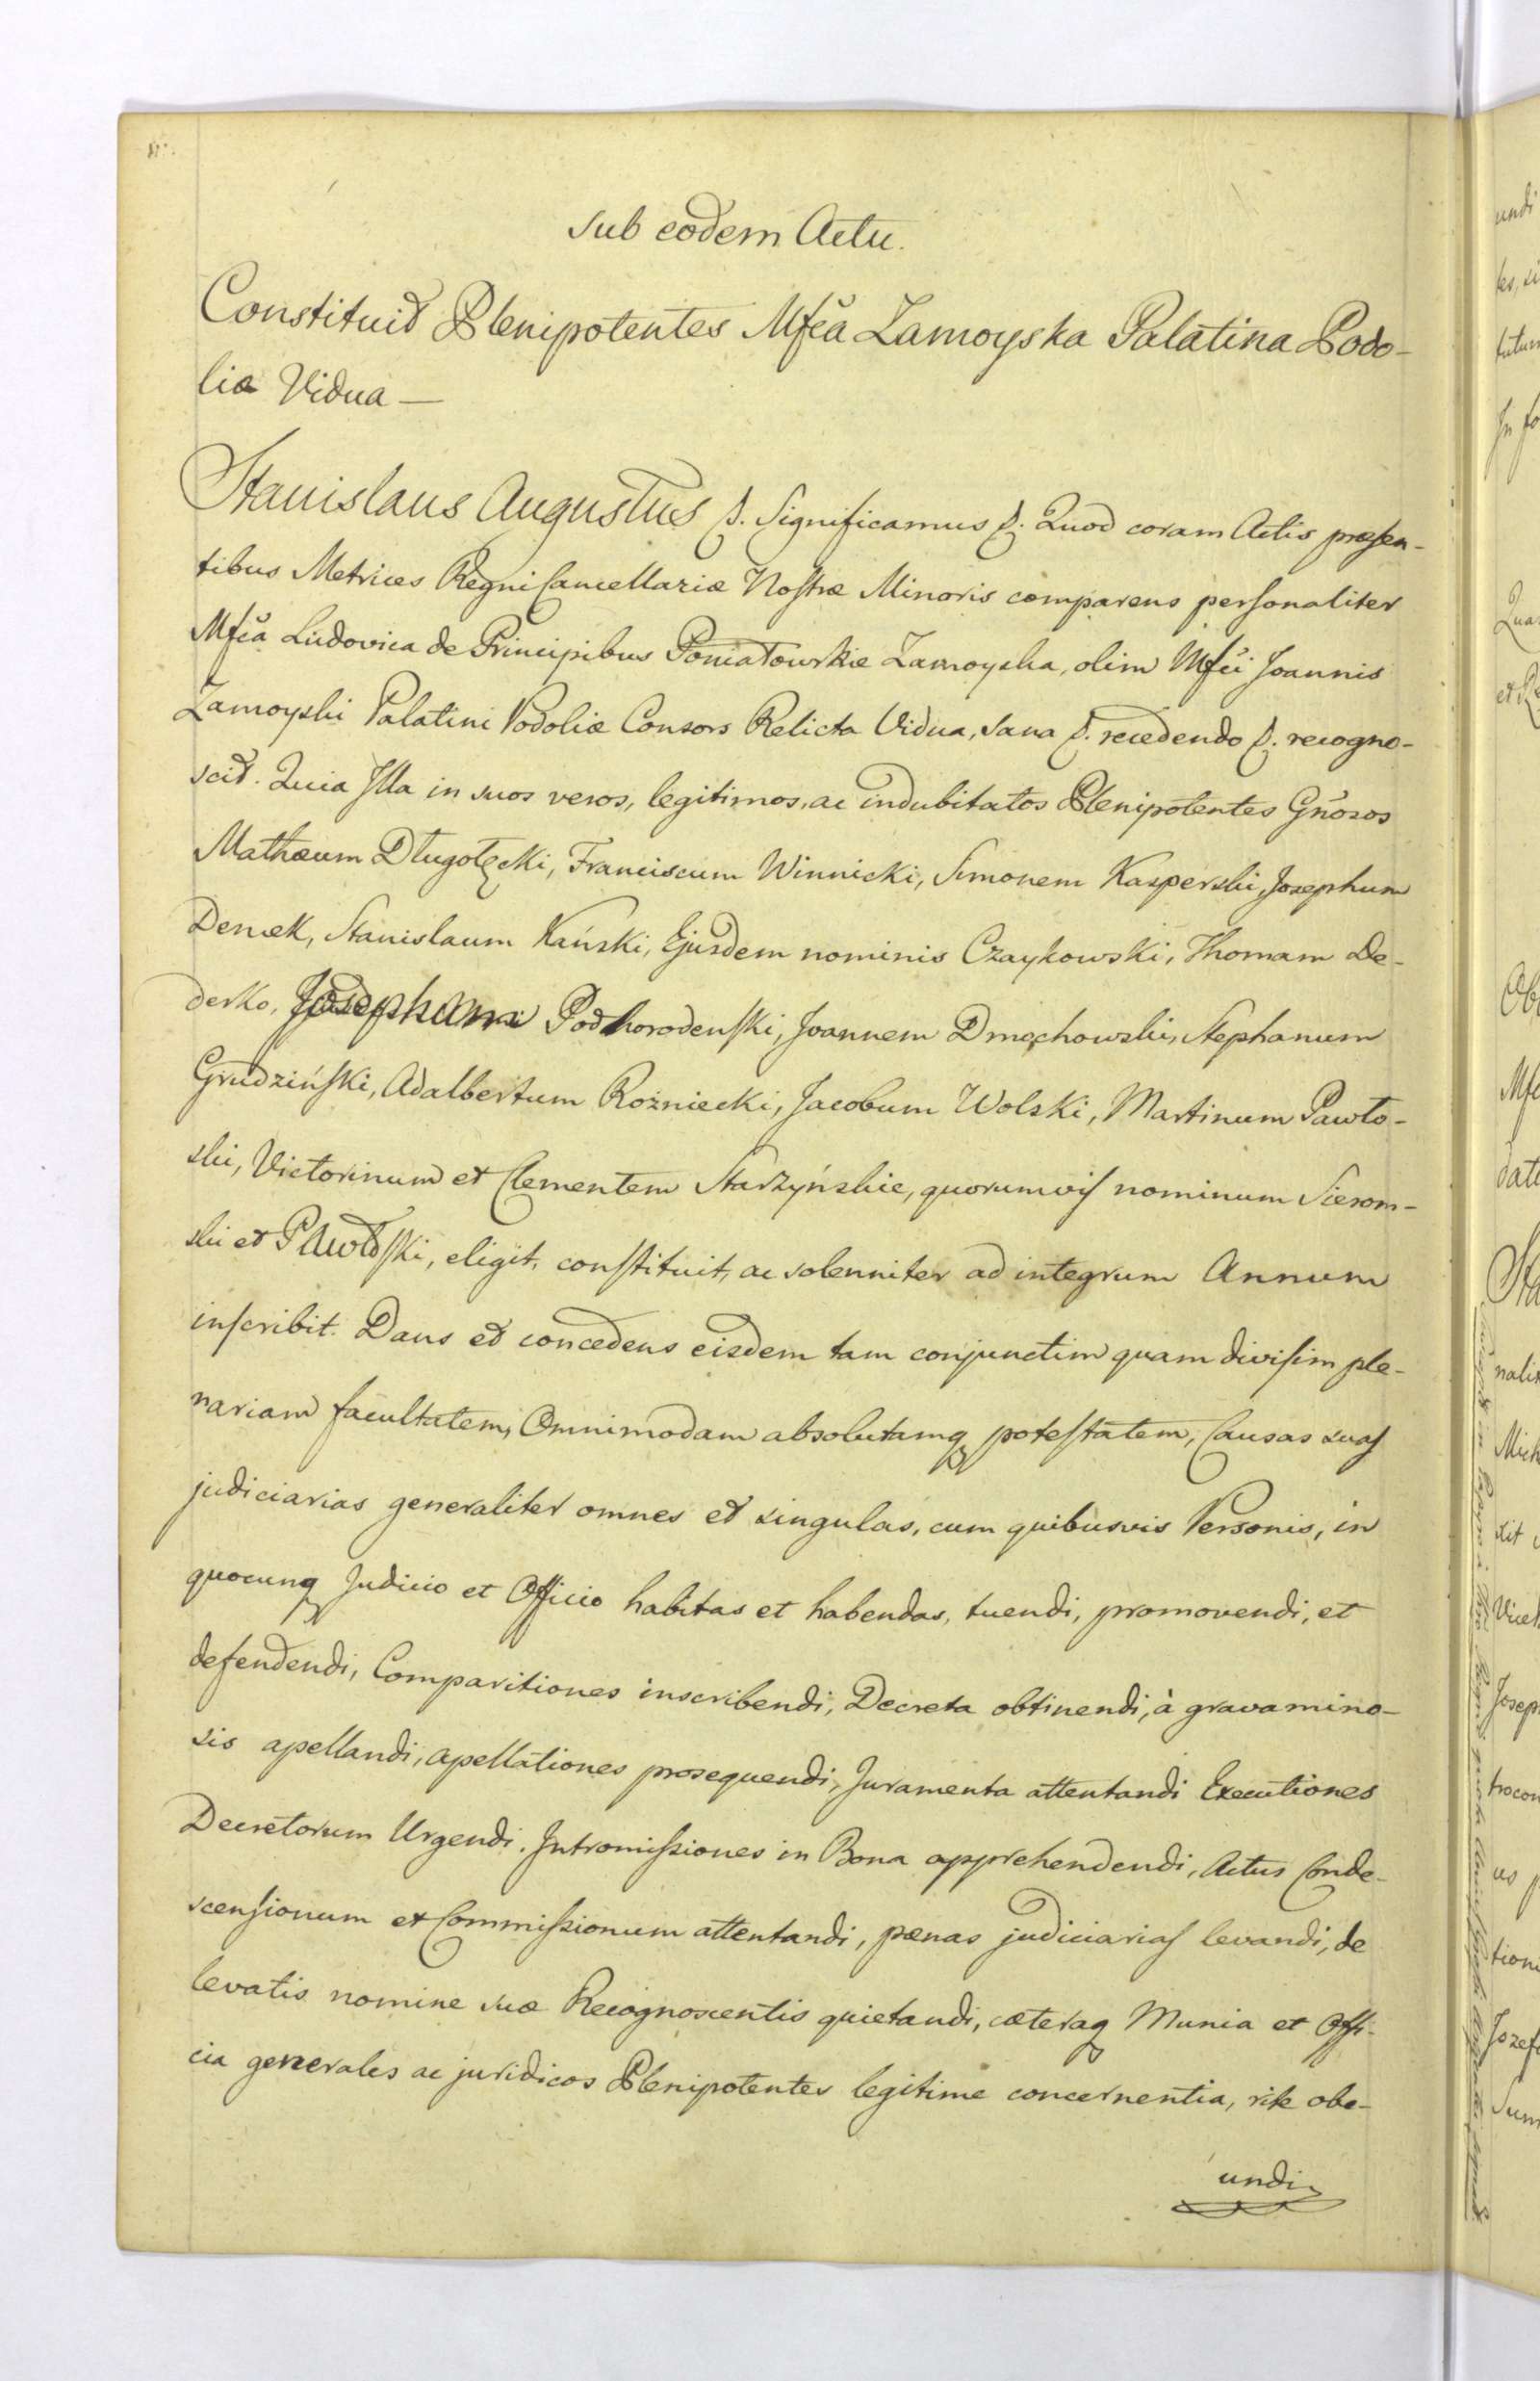 Sub eodem Actu.
Constituit Plenipotentes Mfca Zamoyska Palatina Podo-
liæ Vidua —
Stanislaus Augustus &. Significamus &. Quod coram Actis præsen-
tibus Metrices Regni Cancellariæ Nostræ Minoris comparens personaliter
Mfca Ludovica de Principibus Poniatowskie Zamoyska, olim Mfci Joannis
Zamoyski Palatini Podoliæ Consors Relicta Vidua, sana &. recedendo &. recogno-
scit. Quia Illa in suos veros, legitimos, ac indubitatos Plenipotentes Gnosos
Mathæum Długołęcki, Franciscum Winnicki, Simonem Kasperski, Josephum
Denæk, Stanislaum Kański, Ejusdem nominis Czaykowski, Thomam De-
derko, Josephum Podhorodenski, Joannem Dmochowski, Stephanum
Grudziński, Adalbertum Rożniecki, Jacobum Wolski, Martinum Pawło-
ski, Victorinum et Clementem Starzyńskie, quorumvis nominum Sierom-
ski et Pawłoski, eligit, constituit, ac solenniter ad integrum Annum
inscribit. Dans et concedens eisdem tam conjunctim quam divisim ple-
nariam facultatem, Omnimodam absolutamq potestatem, Causas suas
judiciarias generaliter omnes et singulas, cum quibusvis Personis, in
quocunq Judicio et Officio habitas et habendas, tuendi, promovendi, et
defendendi, Comparitiones inscribendi, Decreta obtinendi, à gravamino-
sis apellandi, apellationes prosequendi, Juramenta attentandi Executiones
Decretorum Urgendi. Intromissiones in Bona apprehendendi, Actus Conde-
scensionum et Commissionum attentandi, pænas judiciarias levandi, de
levatis nomine suæ Recognoscentis quietandi, cæteraq Munia et Offi-
cia generales ac juridicos Plenipotentes legitime concernentia, rite obe-
undi